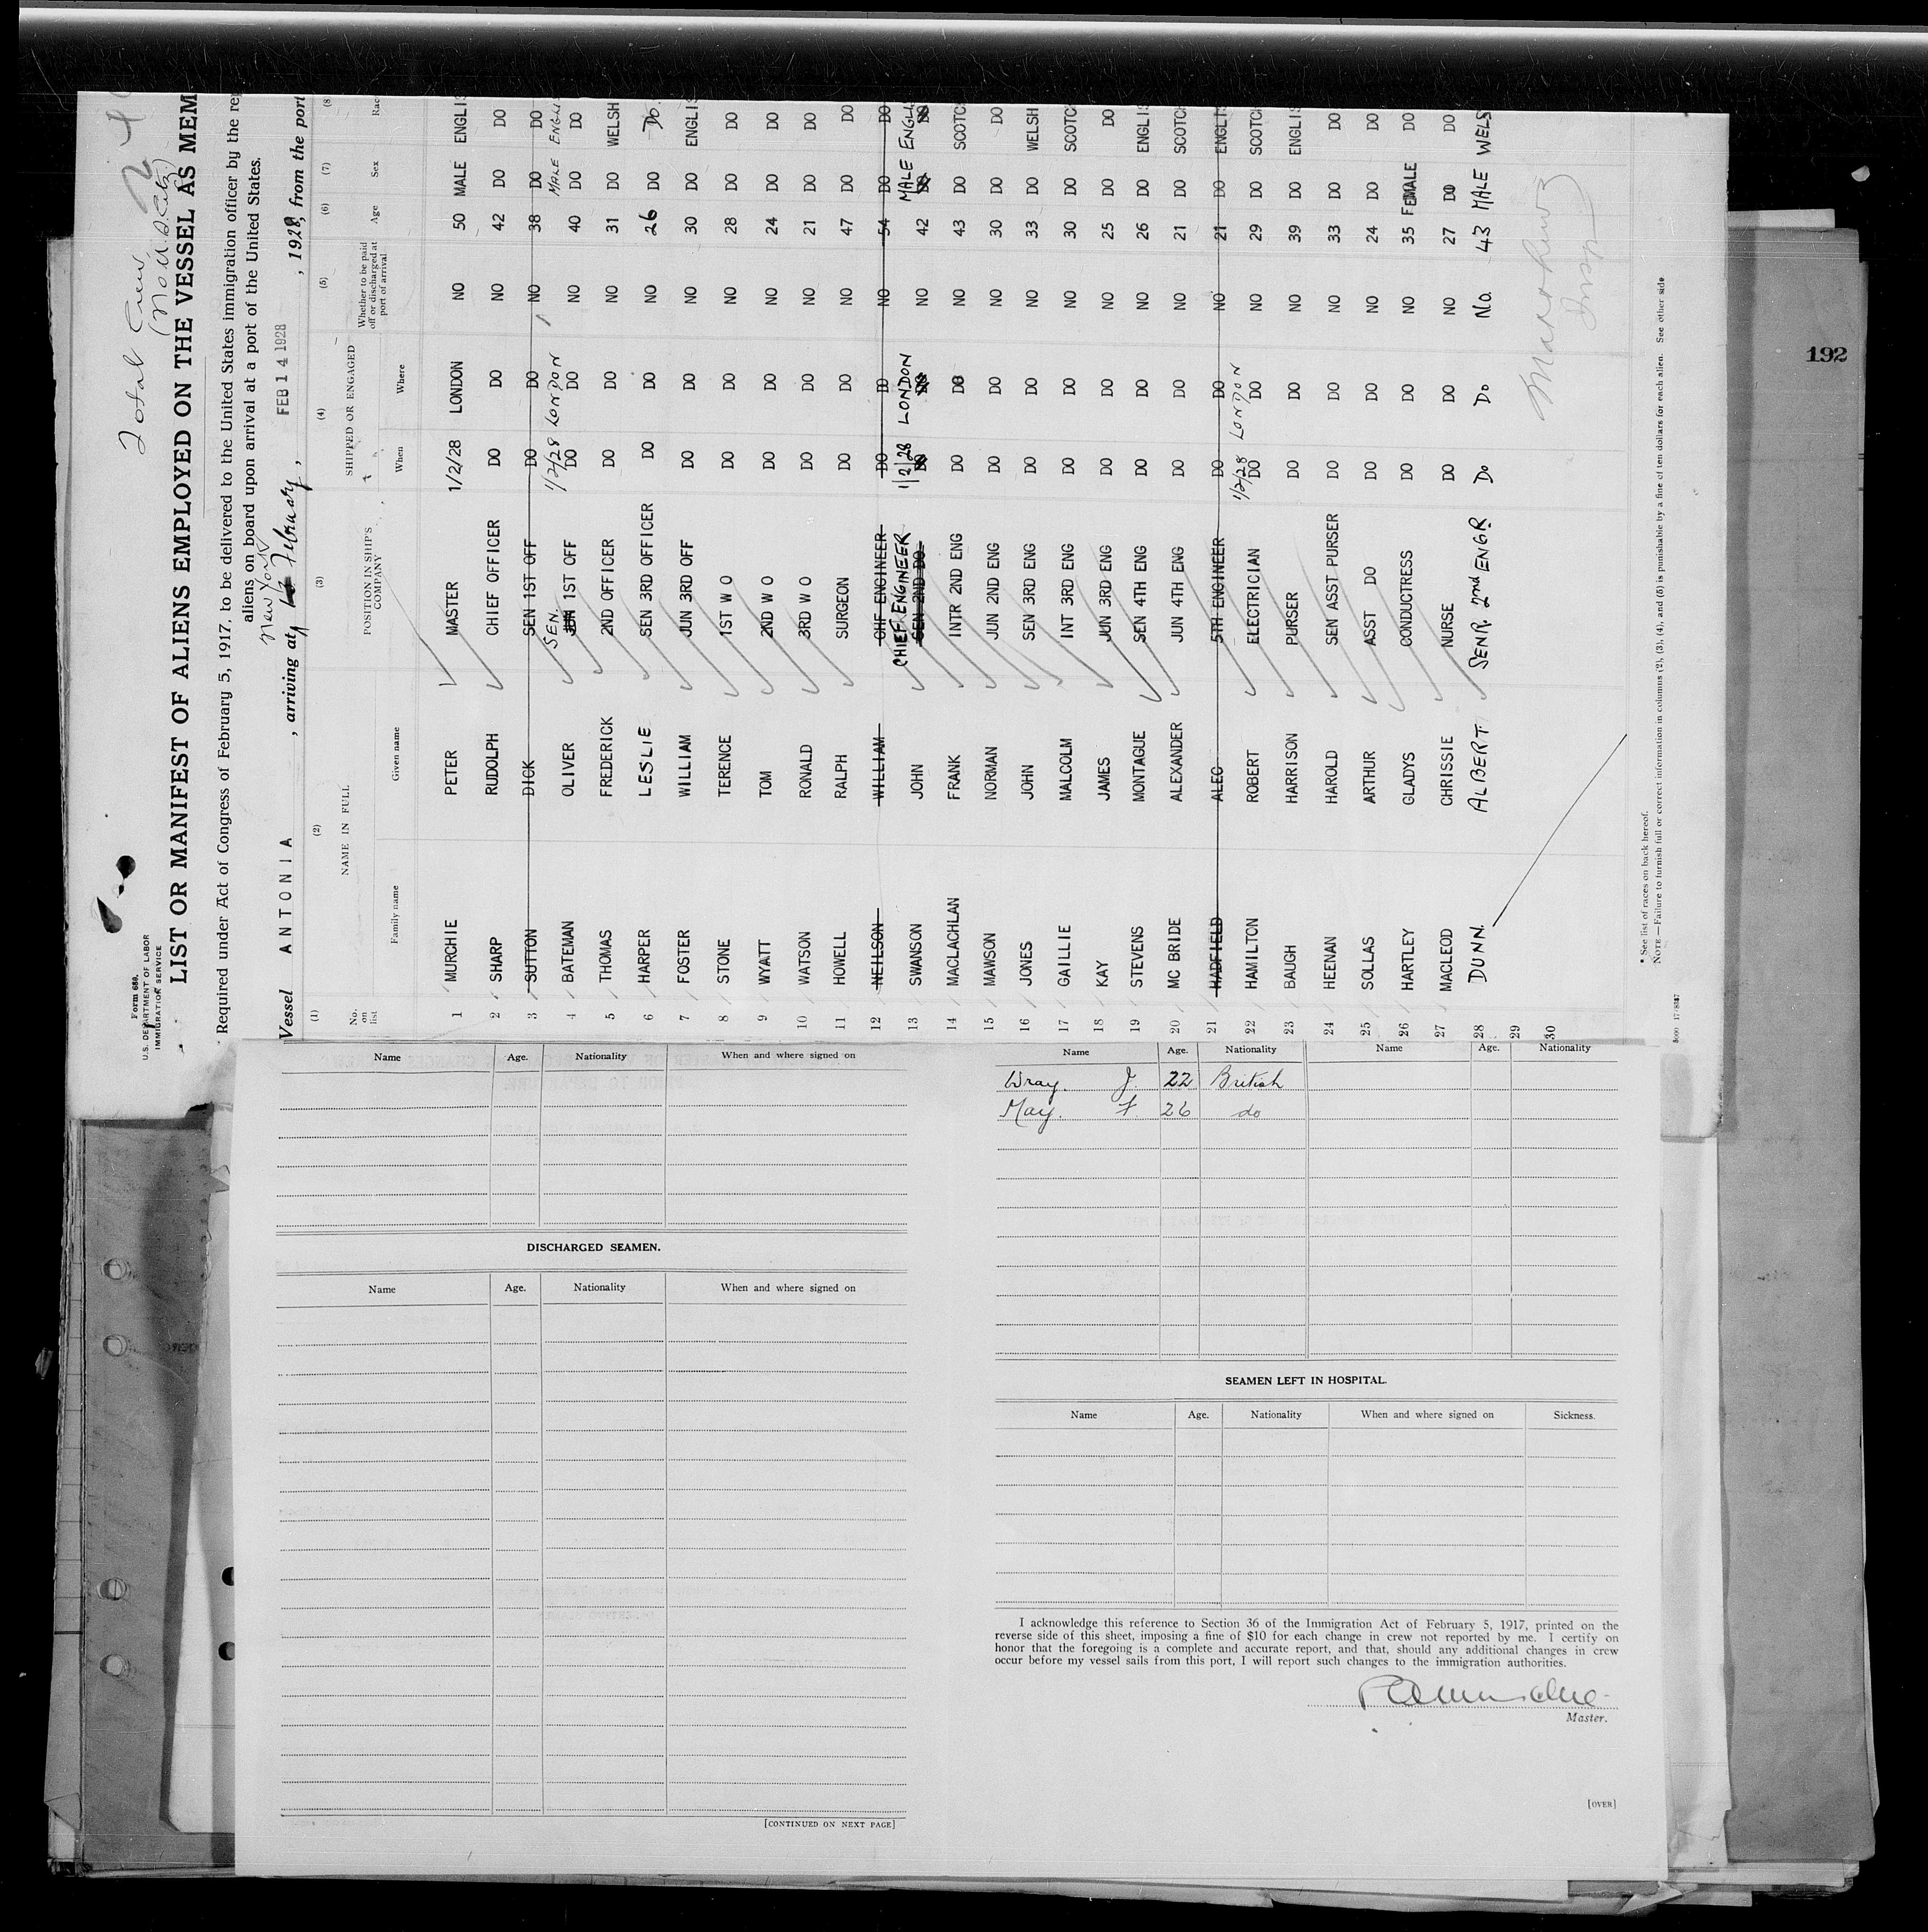 Form 689.
U.S. DEPARTMENT OF LABOR
IMMIGRATION SERVICE
Total Crew
LIST OR MANIFEST OF ALIENS EMPLOYED ON THE VESSEL AS MEM
Required under Act of Congress of February 5, 1917, to be delivered to the United States immigration officer by the re
aliens on board upon arrival at a port of the United States.
New York
Vessel ANTONIA, arriving at February, FEB 14 1928, 1928, from the port
(1) (2) (3) (4) (5) (6) (7) (8)
No. on list NAME IN FULL POSITION IN SHIP'S COMPANY SHIPPED OR ENGAGED Whether to be paid off or discharged at port of arrival Age Sex Rac
Family name Given name When Where
1 MURCHIE PETER MASTER 1/2/28 LONDON NO 50 MALE ENGLIS
2 SHARP RUDOLPH CHIEF OFFICER DO DO NO 42 DO DO
3 SUTTON DICK SEN 1ST OFF DO DO NO 38 DO DO
SEN. 1/2/28 LONDON MALE ENGLIS
4 BATEMAN OLIVER JUN 1ST OFF DO DO NO 40 DO DO
5 THOMAS FREDERICK 2ND OFFICER DO DO NO 31 DO WELSH
6 HARPER LESLIE SEN 3RD OFFICER DO DO NO 26 DO Do.
7 FOSTER WILLIAM JUN 3RD OFF DO DO NO 30 DO ENGLIS
8 STONE TERENCE 1ST W O DO DO NO 28 DO DO
9 WYATT TOM 2ND W O DO DO NO 24 DO DO
10 WATSON RONALD 3RD W O DO DO NO 21 DO DO
11 HOWELL RALPH SURGEON DO DO NO 47 DO DO
12 NEILSON WILLIAM CHF ENGINEER DO DO NO 54 DO DO
CHIEF ENGINEER 1/2/28 LONDON MALE ENGLI
13 SWANSON JOHN SEN 2ND DO DO DO NO 42 DO DO
14 MACLACHLAN FRANK INTR 2ND ENG DO DO NO 43 DO SCOTC
15 MAWSON NORMAN JUN 2ND ENG DO DO NO 30 DO DO
16 JONES JOHN SEN 3RD ENG DO DO NO 33 DO WELSH
17 GAILLIE MALCOLM INT 3RD ENG DO DO NO 30 DO SCOTC
18 KAY JAMES JUN 3RD ENG DO DO NO 25 DO DO
19 STEVENS MONTAGUE SEN 4TH ENG DO DO NO 26 DO ENGLIS
20 MC BRIDE ALEXANDER JUN 4TH ENG DO DO NO 21 DO SCOTCH
21 HADFIELD ALEC 5TH ENGINEER DO DO NO 21 DO ENGLIS
1/2/28 LONDON
22 HAMILTON ROBERT ELECTRICIAN DO DO NO 29 DO SCOTCH
23 BAUGH HARRISON PURSER DO DO NO 39 DO ENGLIS
24 HEENAN HAROLD SEN ASST PURSER DO DO NO 33 DO DO
25 SOLLAS ARTHUR ASST DO DO DO NO 24 DO DO
26 HARTLEY GLADYS CONDUCTRESS DO DO NO 35 FEMALE DO
27 MACLEOD CHRISSIE NURSE DO DO NO 27 DO DO
28 DUNN. ALBERT. SENR. 2nd ENGR Do Do No. 43 MALE WELS
29
30
* See list of races on back hereof.
NOTE.—Failure to furnish full or correct information in columns (2), (3), (4), and (5) is punishable by a fine of ten dollars for each alien. See other side
192
Name Age. Nationality When and where signed on
DISCHARGED SEAMEN.
Name Age. Nationality When and where signed on
[CONTINUED ON NEXT PAGE]
Name Age. Nationality Name Age. Nationality
Wray. J. 22 British
May. F. 26 do
SEAMEN LEFT IN HOSPITAL.
Name Age. Nationality When and where signed on Sickness.
I acknowledge this reference to Section 36 of the Immigration Act of February 5, 1917, printed on the
reverse side of this sheet, imposing a fine of $10 for each change in crew not reported by me. I certify on
honor that the foregoing is a complete and accurate report, and that, should any additional changes in crew
occur before my vessel sails from this port, I will report such changes to the immigration authorities.
Master.
[OVER]